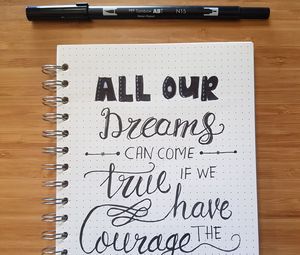 Tombow ABT N15
ALL OUR
Dreams
CAN COME
true IF WE
have
Courage THE